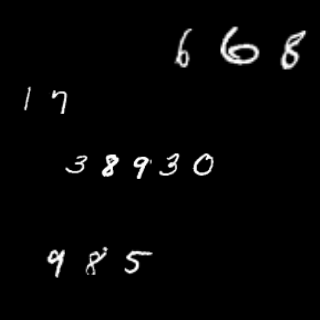 668
17
38930
985